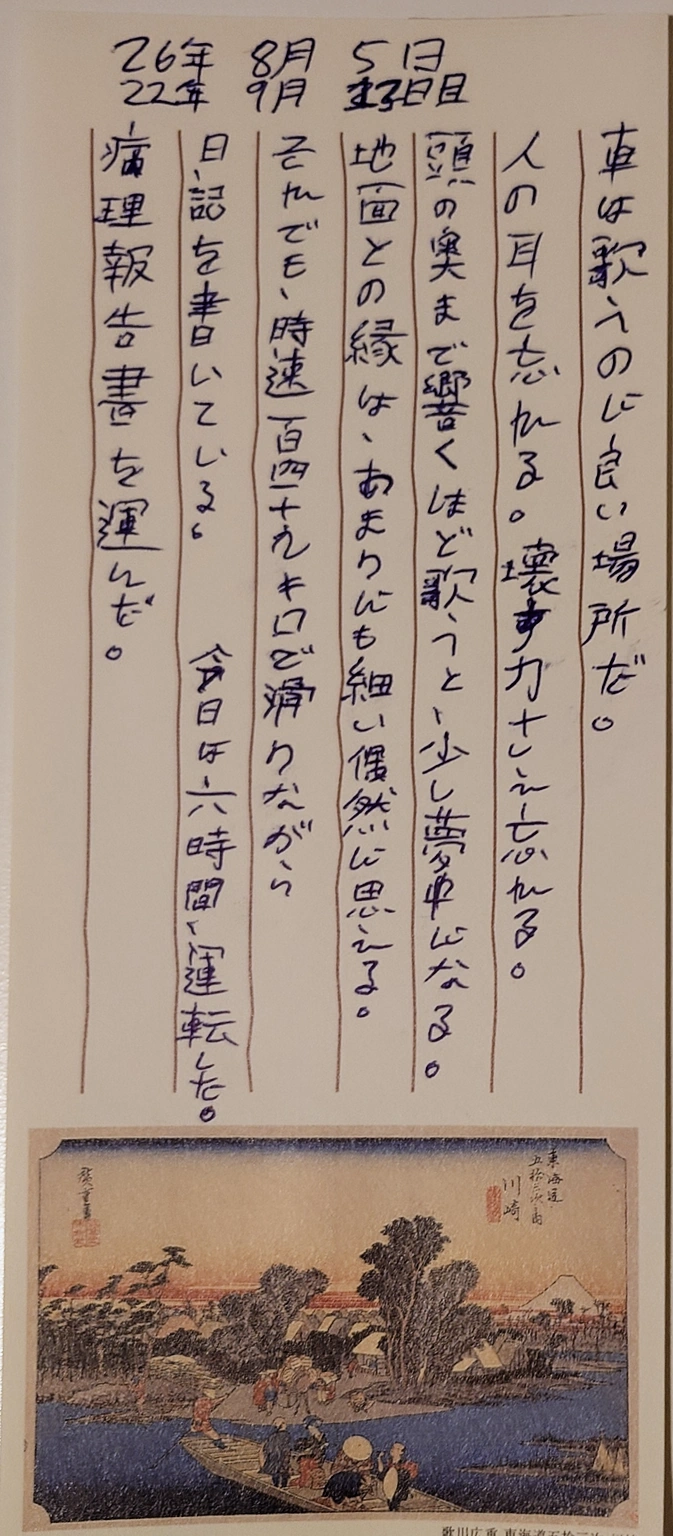 26年 8月 5日
22年 9月 日目
車は歌うのに良い場所だ。
人の耳を忘れる。壊す力さえ忘れる。
頭の奥まで響くほど歌うと、少し夢中になる。
地面との縁は、あまりにも細い偶然に思える。
それでも、時速百四十九キロで滑りながら
日記を書いている。 今日は六時間、運転した。
病理報告書を運んだ。
東海道
五拾三次之内
川崎
廣重画
歌川広重 東海道五拾三次